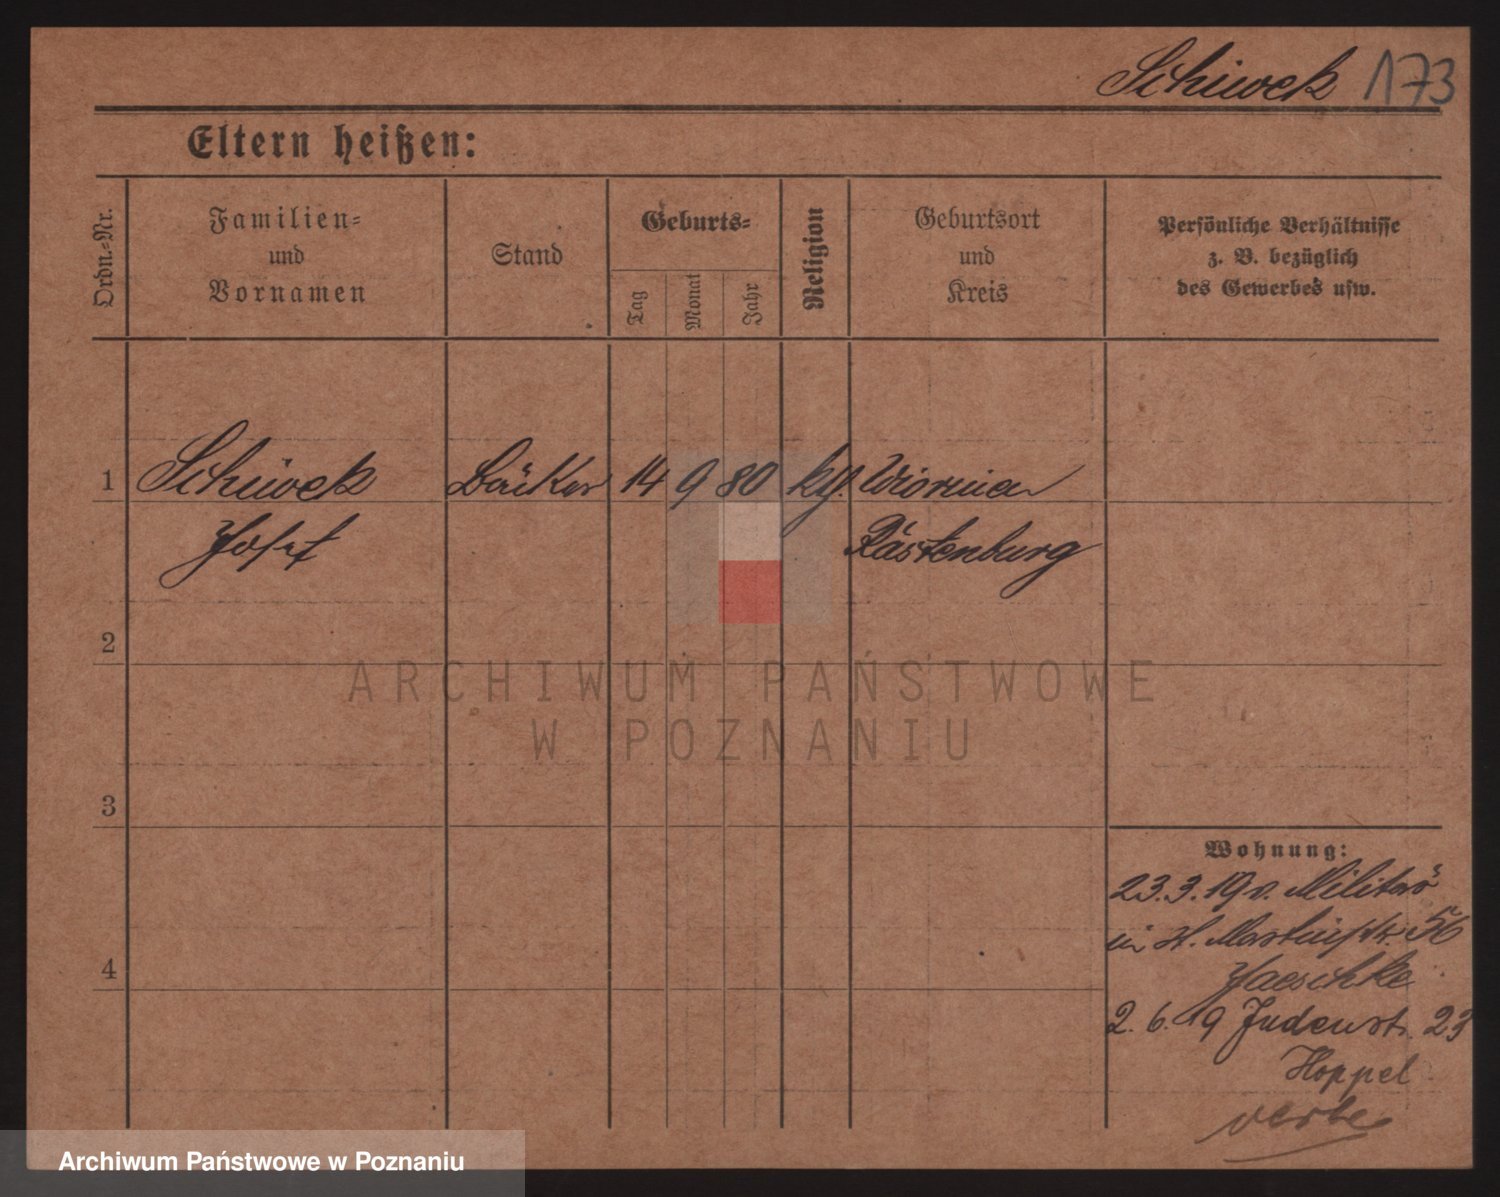 Schiwek 173
Eltern heißen:
Ordn.-Nr.
Familien-
und
Vornamen
Stand
Geburts-
Tag
Monat
Jahr
Religion
Geburtsort
und
Kreis
Persönliche Verhältnisse
z. B. bezüglich
des Gewerbes usw.
1 Schiwek Bäcker 14 9 80
Josef Rastenburg
2
ARCHIWUM PAŃSTWOWE
W POZNANIU
3
Wohnung:
23.3.19 v. Militär
in St. Martinstr. 56
Jaeschke
4
2. 6. 19 Judenstr. 23
Hoppel
Archiwum Państwowe w Poznaniu